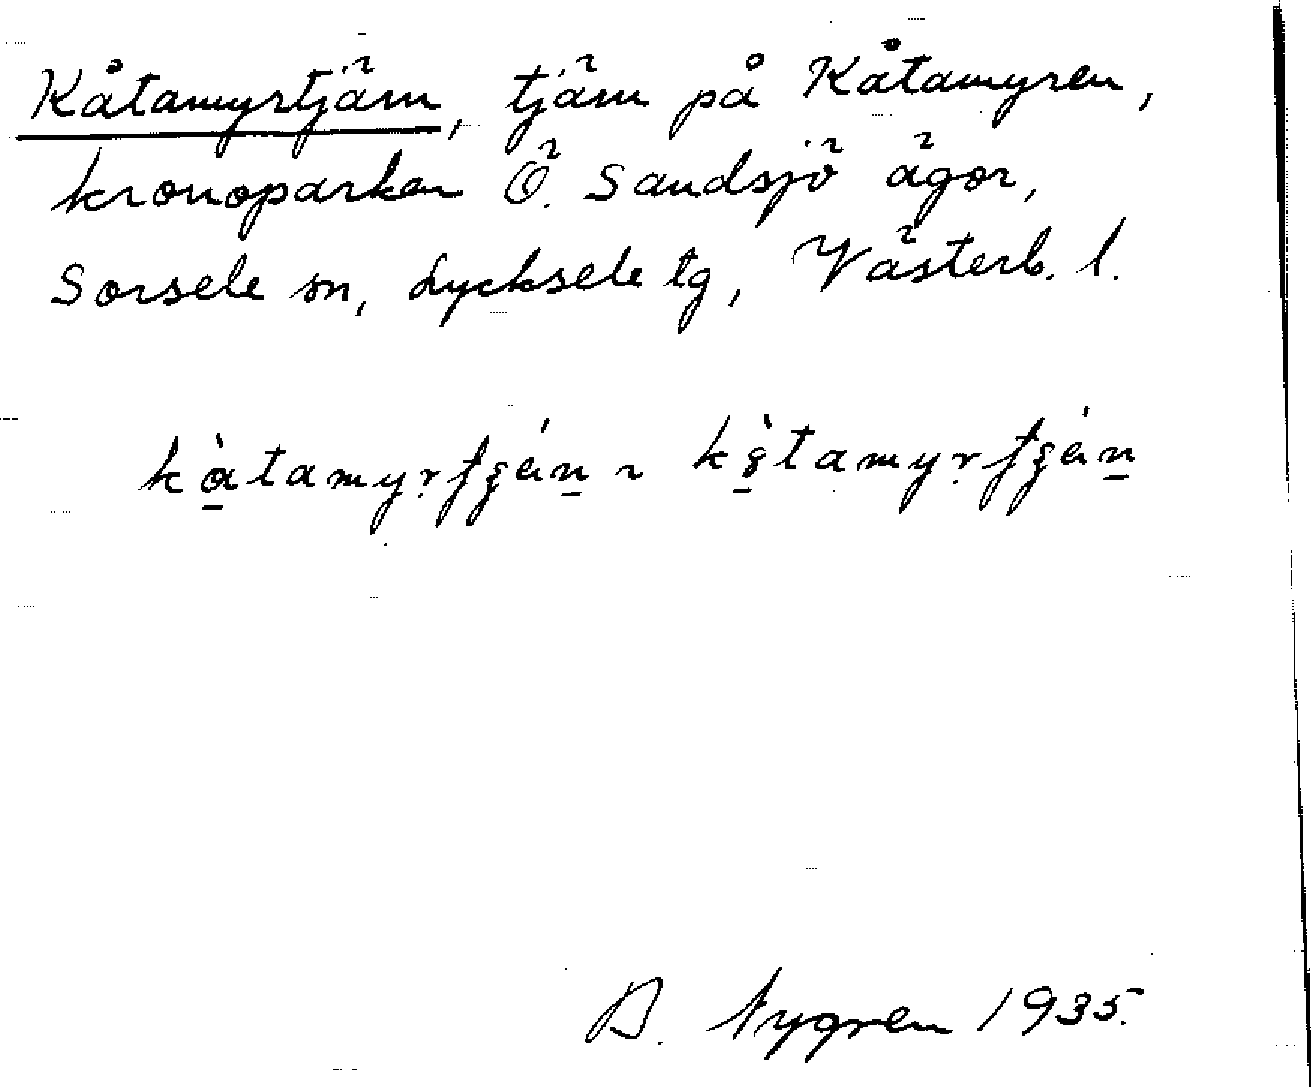 Kåtamyrtjärn, tjärn på Kåtamyren,
kronoparken Ö. Sandsjö ägor,
Sorsele sn, Lycksele tg, Västerb. l.
B. Nygren 1935.